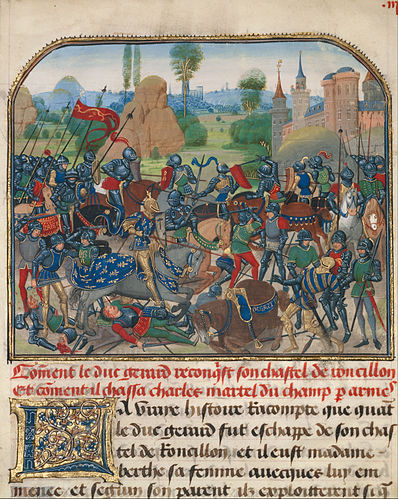 Coment le duc gerard reconqst son chastel de roncillon
Et coment il chassa charles martel du champ p armes
LA vraye histoire racompte que quāt
le duc gerard fut eschappe de son chas
tel de roncillon et il eust madame
berthe sa femme auecques luy em
menee et seguin son parent ilz exploitterent